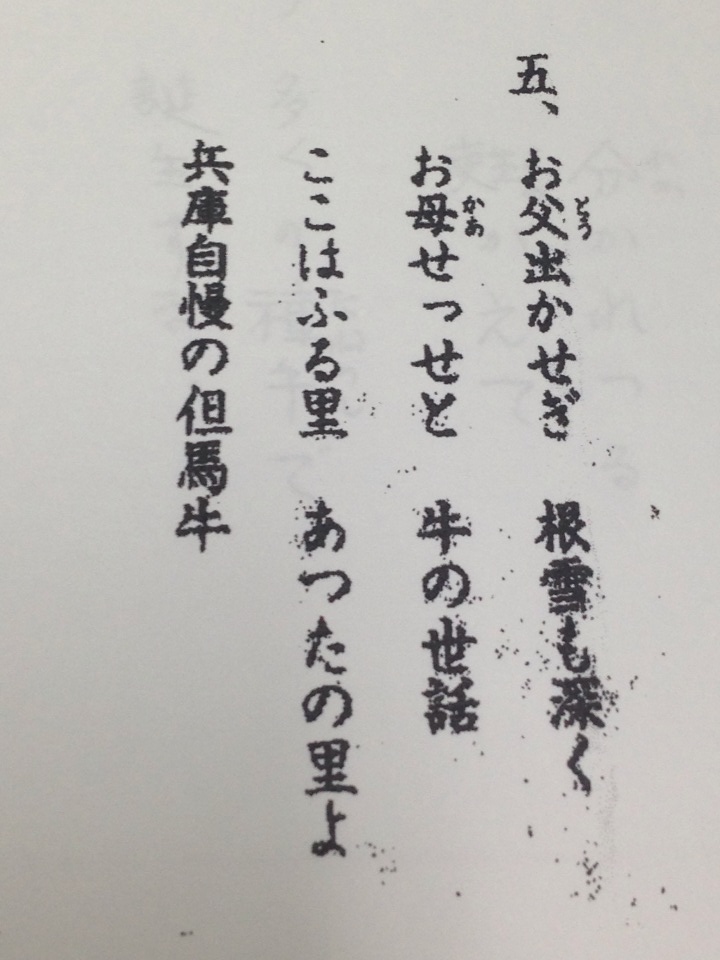 五、お父出かせぎ　根雪も深く
とう
お母せっせと　牛の世話
かあ
ここはふる里　あつたの里よ
兵庫自慢の但馬牛